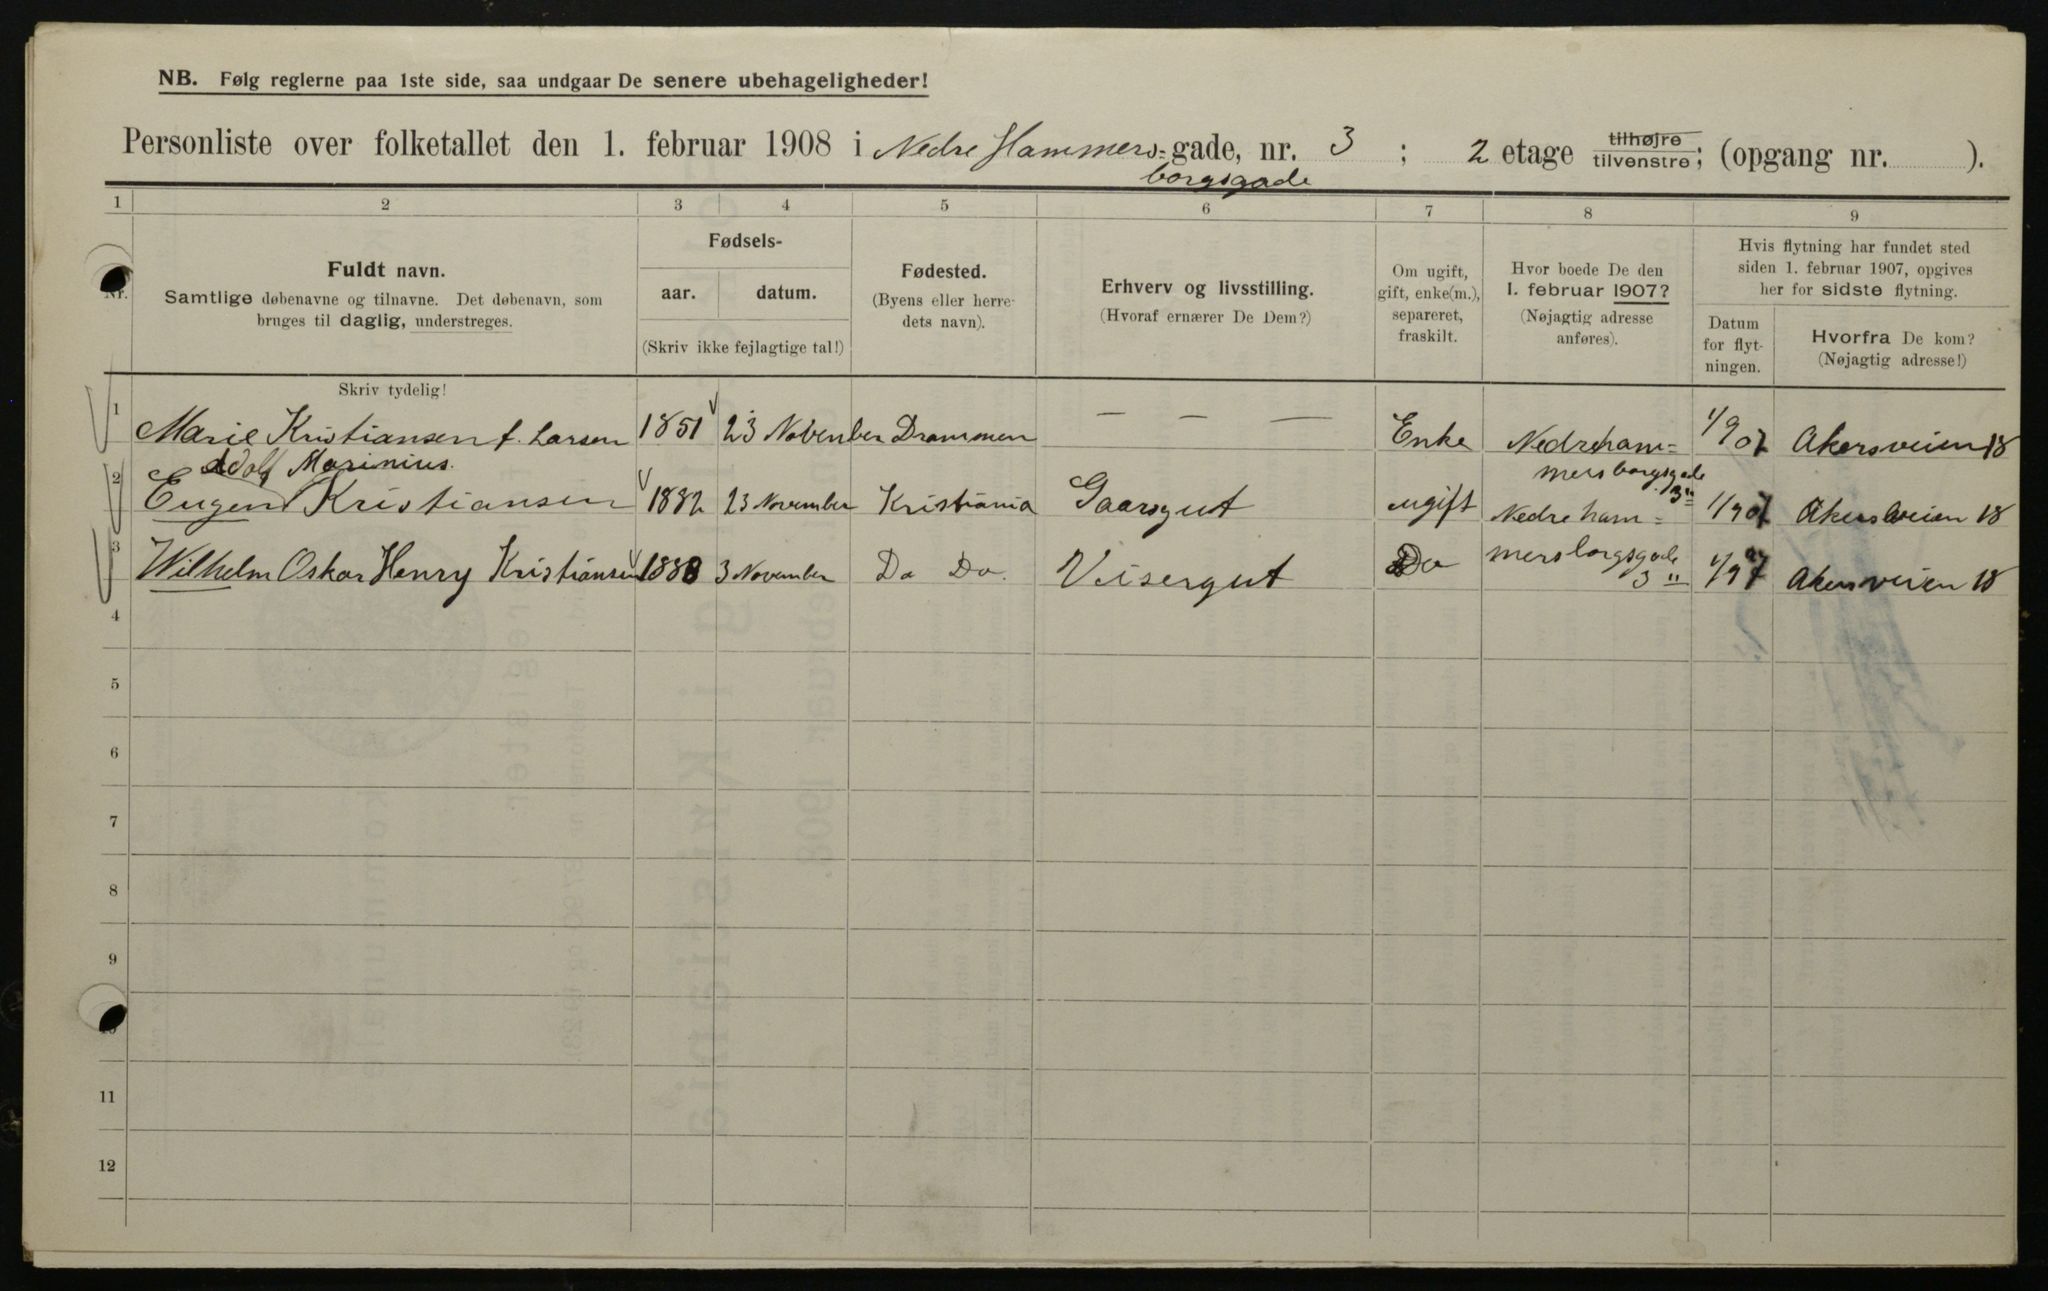 NB. Følg reglerne paa 1ste side, saa undgaar De senere ubehageligheder!
Personliste over folketallet den 1. februar 1908 i Nedre Hammers=gade, nr. 3 ; 2 etage tilhøjre tilvenstre; (opgang nr. ).
borgsgade
1 2 3 4 5 6 7 8 9
Nr.
Fuldt navn.
Samtlige døbenavne og tilnavne. Det døbenavn, som
bruges til daglig, understreges.
Fødsels-
aar. datum.
(Skriv ikke fejlagtige tal!)
Fødested.
(Byens eller herre-
dets navn).
Erhverv og livsstilling.
(Hvoraf ernærer De Dem?)
Om ugift,
gift, enke(m.),
separeret,
fraskilt.
Hvor boede De den
1. februar 1907?
(Nøjagtig adresse
anføres).
Hvis flytning har fundet sted
siden 1. februar 1907, opgives
her for sidste flytning.
Datum
for flyt-
ningen.
Hvorfra De kom?
(Nøjagtig adresse!)
Skriv tydelig!
1 Marie Kristiansen f. Larsen 1851 23 November Drammen — — — Enke Nedreham= 1/9 07 Akersveien 18
Adolf Marinius. mersborgsgade
3"
2 Eugen Kristiansen 1882 23 November Kristiania Gaarsgut ugift Nedre ham= 1/9 07 Akersveien 18
3 Wilhelm Oskar Henry Kristiansen 1888 3 November Do Do. Visergut Do mersborgsgade 1/9 07 Akersveien 18
3"
4
5
6
7
8
9
10
11
12